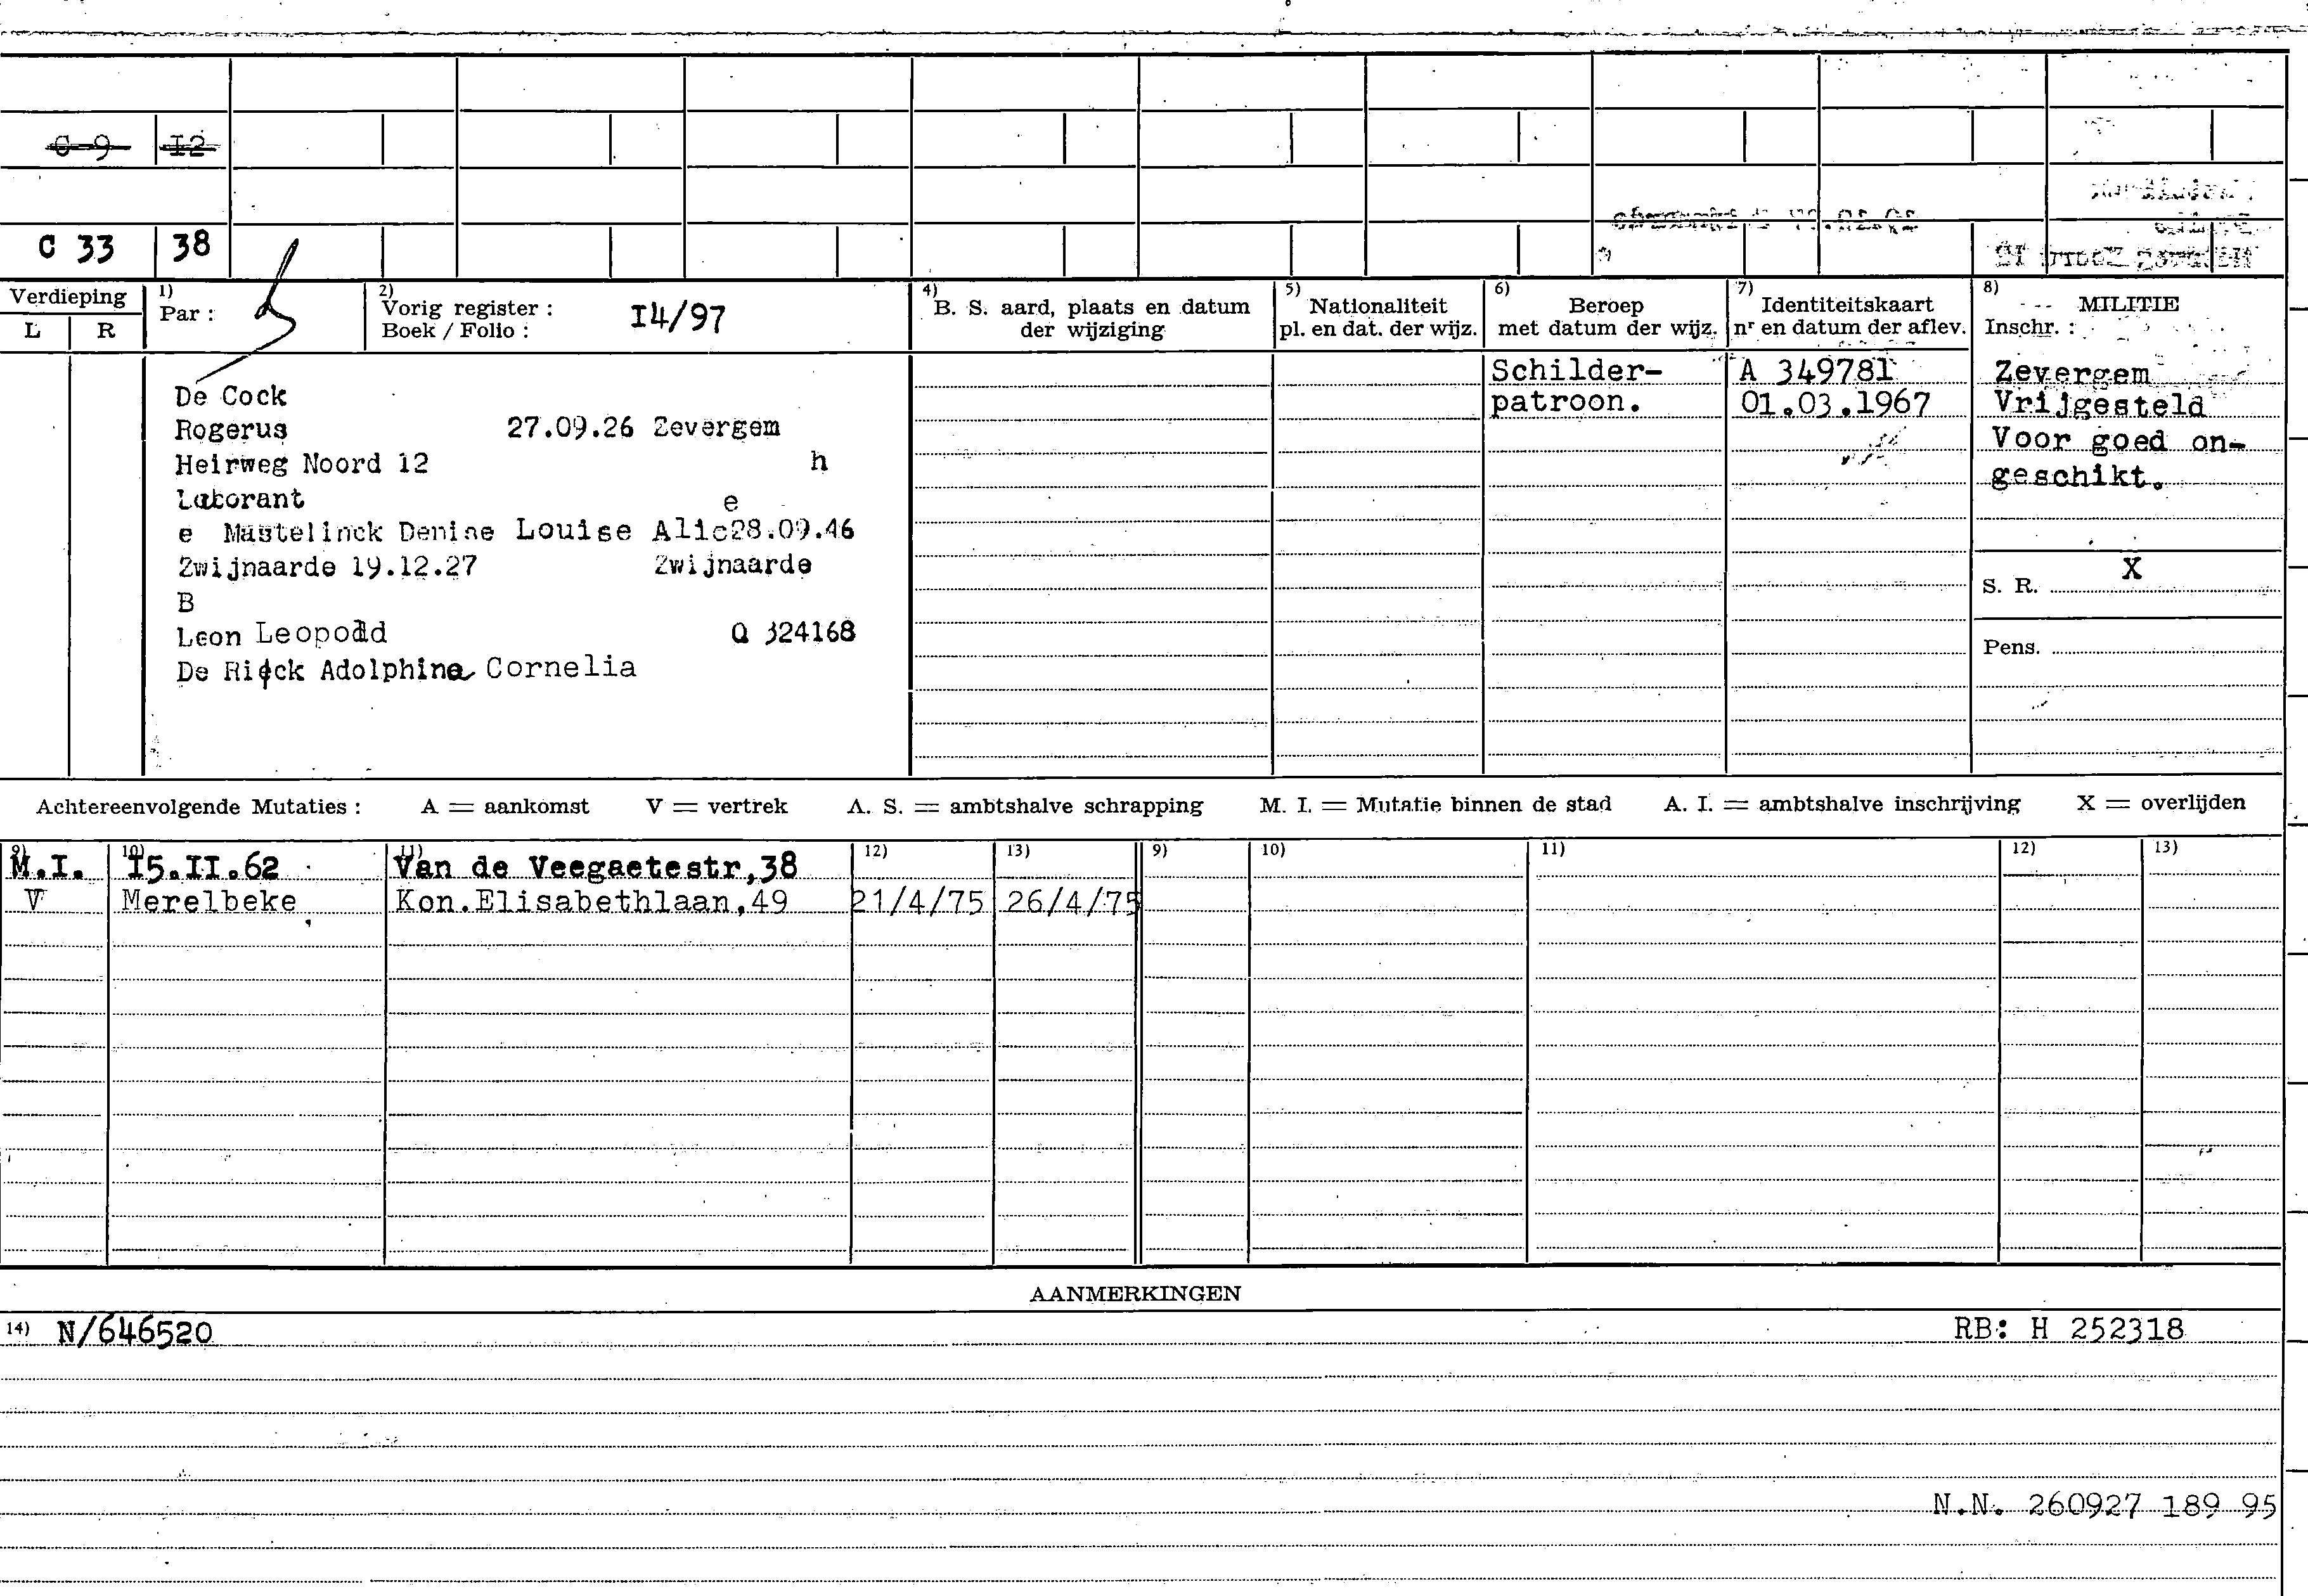 C 9 I2
C 33 38
Verdieping
L R
1) Par :
2) Vorig register :
Boek / Folio : I4/97
4) B. S. aard, plaats en datum
der wijziging
5) Nationaliteit
pl. en dat. der wijz.
6) Beroep
met datum der wijz.
7) Identiteitskaart
nr en datum der aflev.
8) MILITIE
Inschr. :
De Cock
Rogerus 27.09.26 Zevergem
Heirweg Noord 12 h
Laborant e
e Mastelinck Denise Louise Alic28.09.46
Zwijnaarde 19.12.27 Zwijnaarde
B
Leon Leopold Q 324168
De Rijck Adolphina Cornelia
Schilder-
patroon.
A 349781
01.03.1967
Zevergem
Vrijgesteld
Voor goed on-
geschikt.
S. R. X
Pens.
Achtereenvolgende Mutaties : A = aankomst V = vertrek A. S. = ambtshalve schrapping M. I. = Mutatie binnen de stad A. I. = ambtshalve inschrijving X = overlijden
9) 10) 11) 12) 13) 9) 10) 11) 12) 13)
M.I. I5.II.62 Van de Veegaetestr,38
V Merelbeke Kon.Elisabethlaan,49 21/4/75 26/4/75
AANMERKINGEN
14) N/646520 RB: H 252318
N.N. 260927 189 95